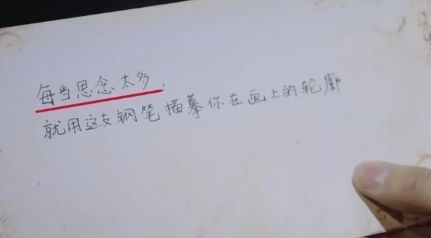 每当思念太多，
就用这支钢笔描摹你在画上的轮廓